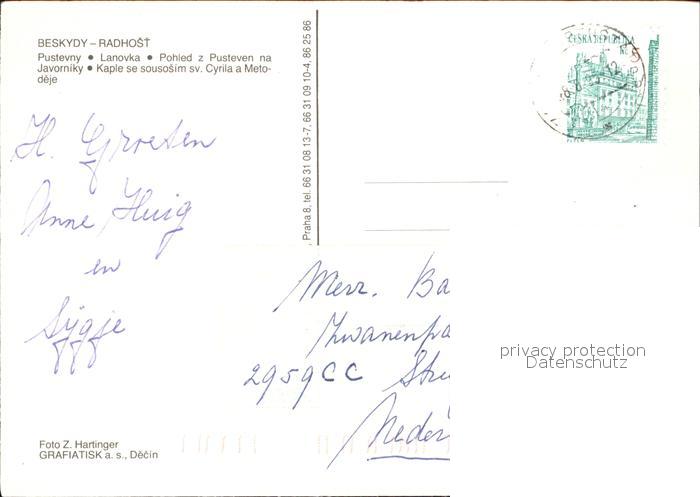 BESKYDY – RADHOŠŤ
Pustevny ● Lanovka ● Pohled z Pusteven na
Javorníky ● Kaple se sousoším sv. Cyrila a Meto-
děje
H. Groeten
Anne Huig
en
Sijgje
Foto Z. Hartinger
GRAFIATISK a. s., Děčín
, Praha 8, tel. 66 31 08 13-7, 66 31 09 10-4, 86 25 86
ČESKÁ REPUBLIKA
Kč
Mevr. Ba
Zwanenpa
2959CC Stre
Neder
privacy protection
Datenschutz